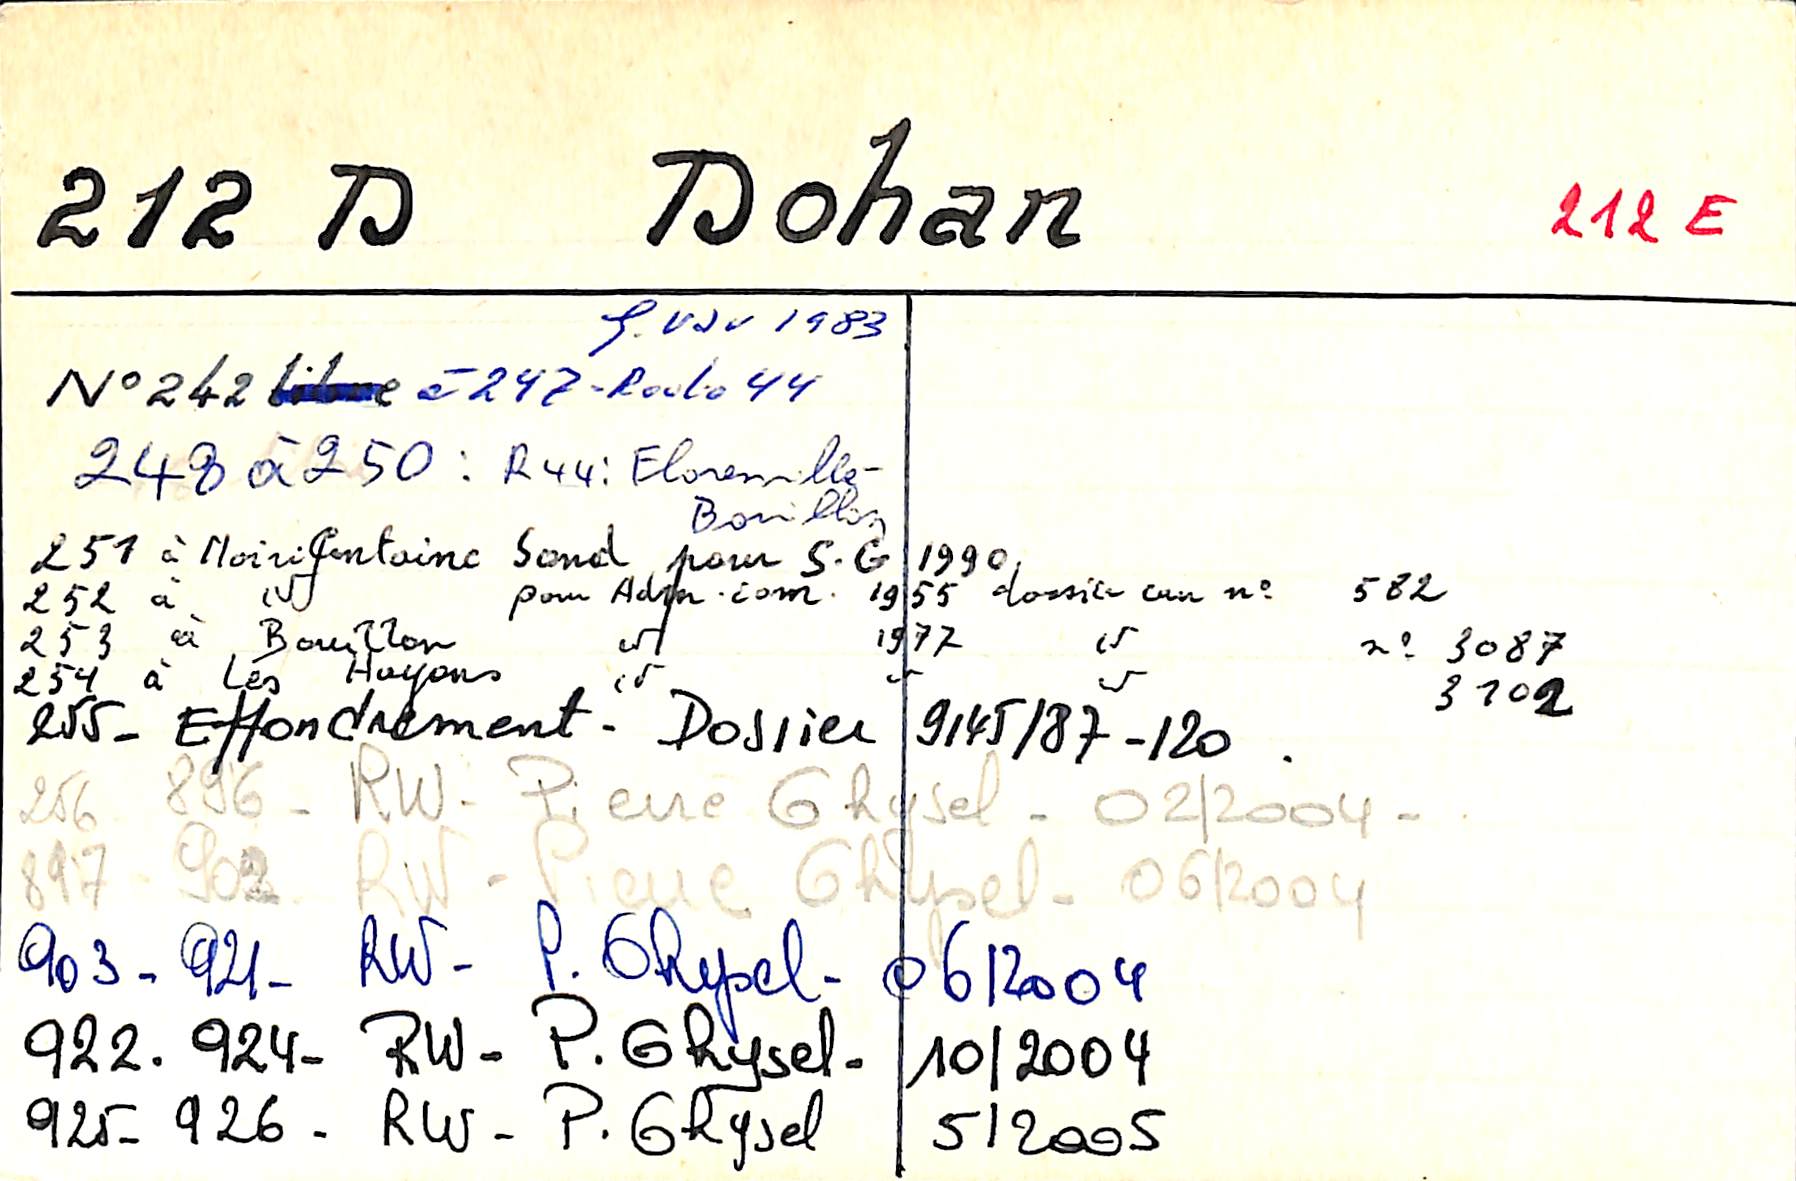 212 D Dohan 212 E
1983
N° 242 libre à 247 - Route 44
248 à 250 : R44 : Florenville-
Bouillon
251 à Noirefontaine Sond pour S.G 1990.
252 à id pour Adm. com. 1955 dossier can n° 582
253 à Bouillon id 1977 id n° 3087
254 à Les Hayons id id 3102
255 - Effondrement - Dossier 9145/87-120.
256 896 - RW - Pierre Ghysel - 02/2004 -
897 - 902 RW - Pierre Ghysel - 06/2004
903 - 921 - RW - P. Ghysel - 06/2004
922. 924 - RW - P. Ghysel - 10/2004
925 - 926 - RW - P. Ghysel 5/2005